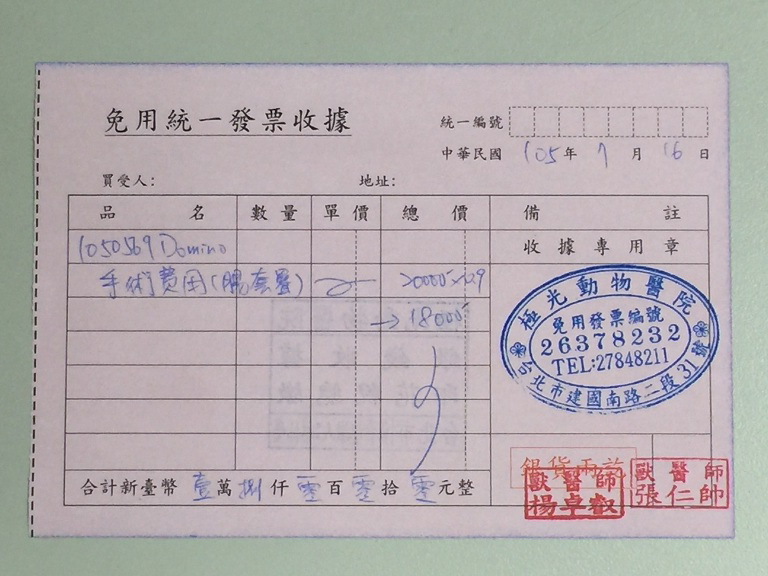 免用統一發票收據
統一編號
中華民國 105 年 7 月 16 日
買受人: 地址:
品名 數量 單價 總價 備註
1050569 Domino 收據專用章
手術費用(腸套疊) 20000×0.9
→18000
極光動物醫院
免用發票編號
26378232
TEL:27848211
台北市建國南路二段31號
銀貨兩訖
獸醫師 獸醫師
楊卓叡 張仁帥
合計新臺幣 壹 萬 捌 仟 零 百 零 拾 零 元整